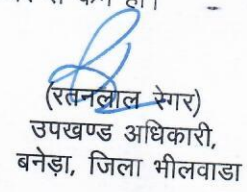 से कम हो।
(रतनलाल रेगर)
उपखण्ड अधिकारी,
बनेड़ा, जिला भीलवाडा